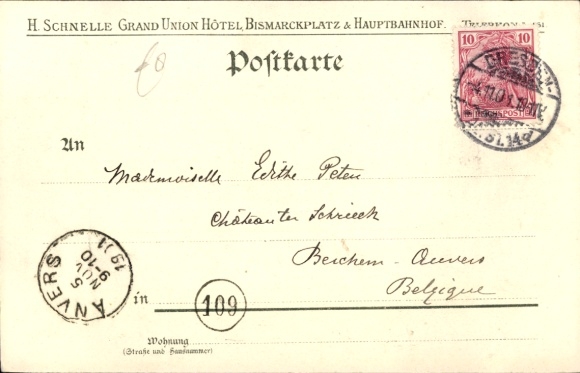 H. SCHNELLE GRAND UNION HÔTEL BISMARCKPLATZ & HAUPTBAHNHOF.
10 10
REICHSPOST
Postkarte
An
Mademoiselle Edithe Peten
Châteauter Schrieck
Berchem-Anvers
Belgique
ANVERS
5
NOV
9-10
in
109
Wohnung
(Straße und Hausnummer)